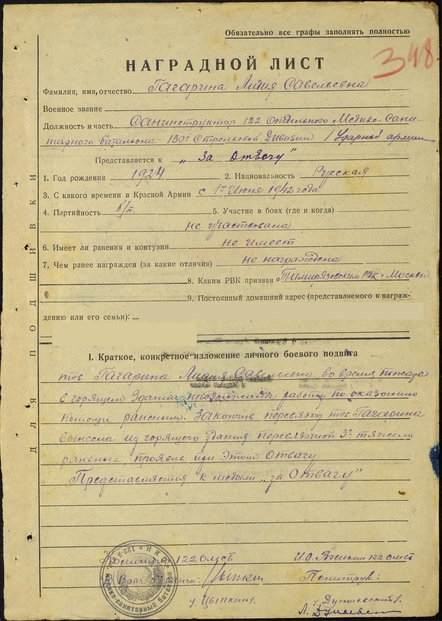 Обязательно все графы заполнять полностью
348
НАГРАДНОЙ ЛИСТ
Фамилия, имя, отчество Гагарина Лидия Савельевна
Военное звание
Должность и часть Санинструктор 122 Отдельного Медико-Сани-
тарного батальона 130й Стрелковой Дивизии 1 Ударной армии
Представляется к „За Отвагу"
1. Год рождения 1924 2. Национальность Русская
3. С какого времени в Красной Армии с 1го Июня 1942 года
4. Партийность б/п. 5. Участие в боях (где и когда)
не участвовала
6. Имеет ли ранения и контузии не имеет
7. Чем ранее награждся (за какие отличия) не награждена
8. Каким РВК призван Тимирязевским РВК г. Москвы
9. Постоянный домашний адрес (представляемого к награж-
дению или его семьи):
I. Краткое, конкретное изложение личного боевого подвига
тов Гагарина Лидия Савельевна во время пожара
в горящем здании продолжала работу по оказанию
помощи раненым. Закончив перевязку тов Гагарина
вынесла из горящего здания перевязочной 3х тяжело
раненых проявив при этом Отвагу.
Представляется к медали „за Отвагу"
ДЛЯ ПОДШИВКИ
122 ОМСБ
И.О. Военком 122 ОМСБ
Врач
Политрук:
/Цыпкин/
/Дунаевский/